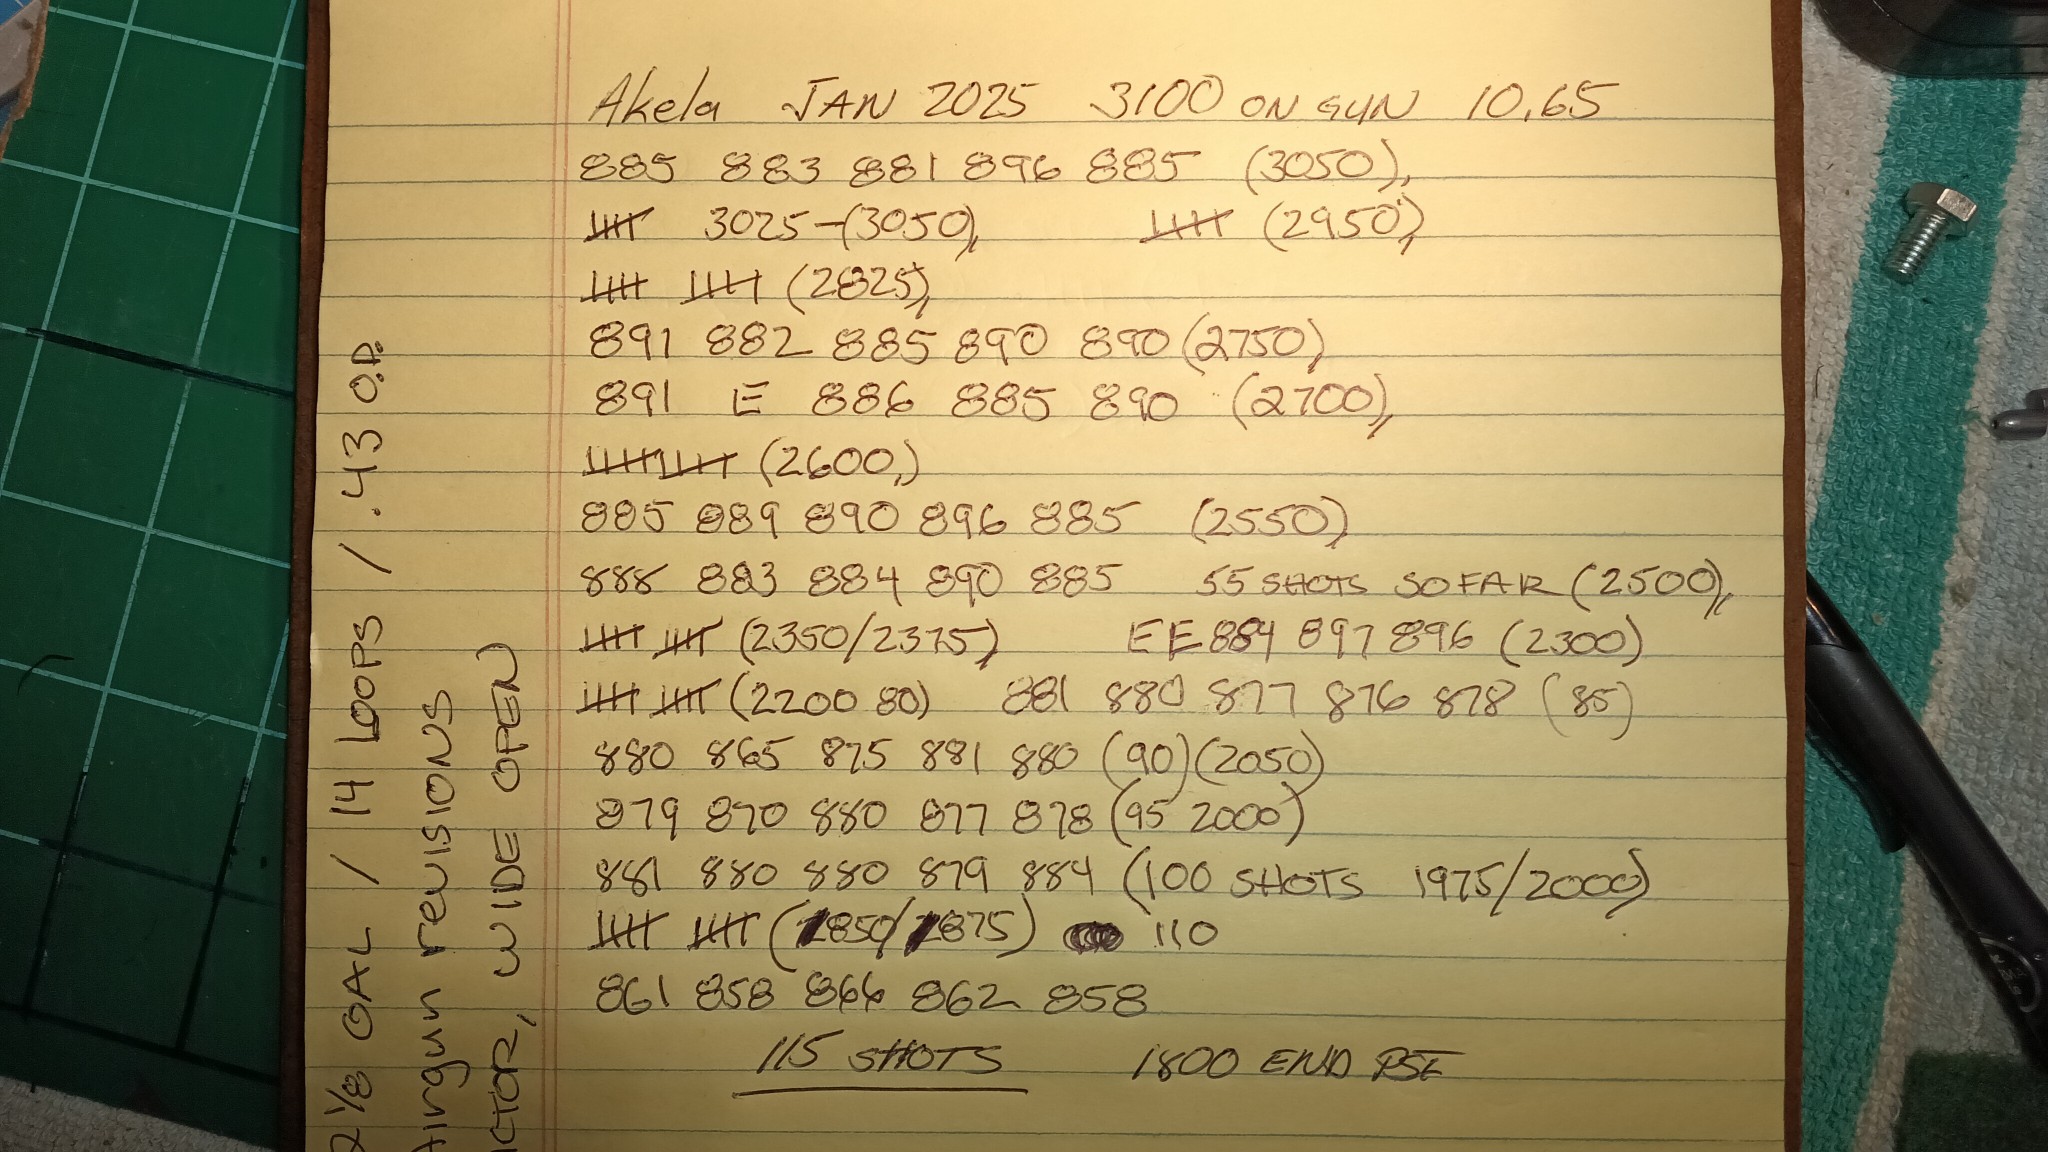 Akela JAN 2025 3100 ON GUN 10.65
885 883 881 896 885 (3050),
3025-(3050), (2950),
(2825),
891 882 885 890 890 (2750),
891 E 886 885 890 (2700),
(2600,)
885 889 890 896 885 (2550),
888 883 884 890 885 55 SHOTS SO FAR (2500),
(2350/2375), EE 884 897 896 (2300)
(2200 80) 881 880 877 876 878 (85)
880 865 875 881 880 (90) (2050)
879 870 880 877 878 (95 2000)
881 880 880 879 884 (100 SHOTS 1975/2000)
(1850/1875) 110
861 858 866 862 858
115 SHOTS 1800 END PSI
2 1/8 OAL / 14 LOOPS / .43 O.D.
Airgun revisions
WIDE OPEN